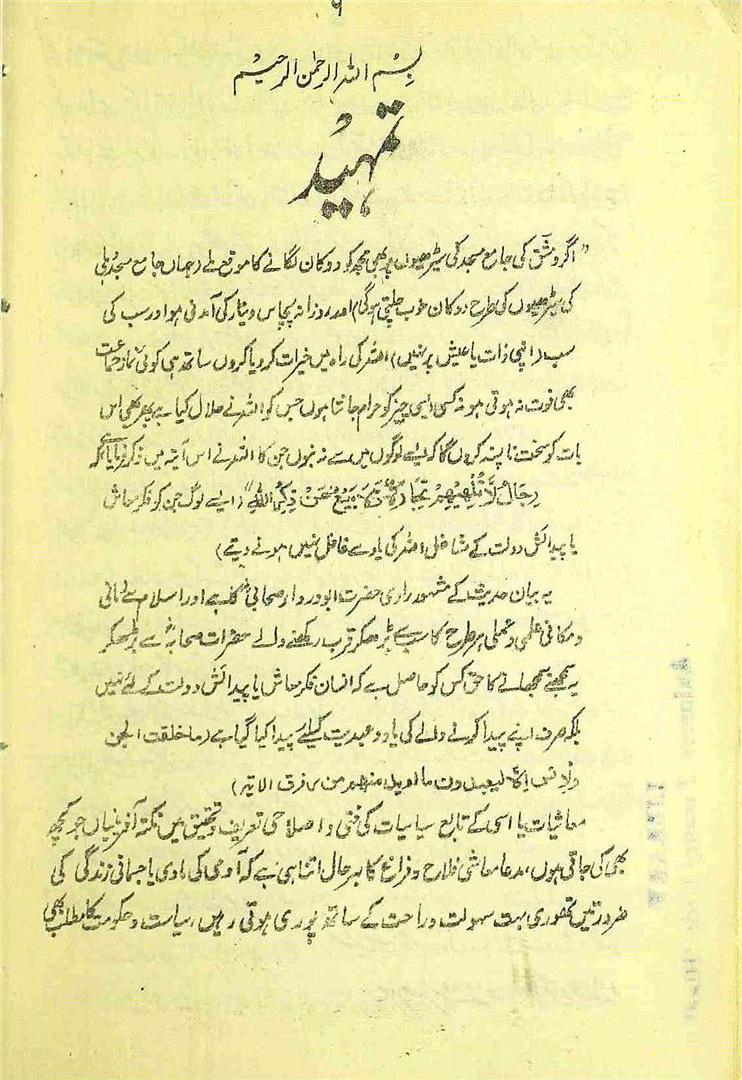 ۹
بِسْم اللہ الرحمٰن الرحیم
تمہید
" اگر دمشق کی جامع مسجد کی سیڑھیوں پر بھی مجھ کو دوکان لگانے کا موقع ملے (جہاں جامع مسجد دہلی
کی سیڑھیوں کی طرح دوکان خوب چلتی ہوگی) اور روزانہ پچاس دینار کی آمدنی ہو اور سب کی
سب (اپنی ذات یا عیش پر نہیں) اللہ کی راہ میں خیرات کر دیا کروں ساتھ ہی کوئی نماز جماعت
بھی فوت نہ ہوتی ہو نہ کسی ایسی چیز کو حرام جانتا ہوں جس کو اللہ نے حلال کیا ہے پھر بھی اس
بات کو سخت ناپسند کروں گا کہ ایسے لوگوں میں سے نہ بنوں جن کا اللہ نے اس آیۃ میں ذکر فرمایا ہے کہ
رِجَالٌ لَّا تُلْهِيهِمْ تِجَارَةٌ وَّلَا بَيْعٌ عَنْ ذِكْرِ اللهِ" (ایسے لوگ جن کو فکر معاش
یا پیدائش دولت کے مشاغل اللہ کی یاد سے غافل نہیں ہونے دیتے)
یہ بیان حدیث کے مشہور راوی حضرت ابودرداء صحابیؓ کا ہے اور اسلام سے زمانی
و مکانی علمی و عملی ہر طرح کا سب سے بڑھکر قرب رکھنے والے حضرات صحابہؓ سے بڑھکر
یہ سمجھنے سمجھانے کا حق کس کو حاصل ہے کہ انسان فکر معاش یا پیدائش دولت کے لئے نہیں
بلکہ صرف اپنے پیدا کرنے والے کی یاد و عبدیت کیلئے پیدا کیا گیا ہے (ما خلقت الجن
والانس الا لیعبدون ما ارید منهم من رزق الآیۃ)
معاشیات یا اسی کے تابع سیاسیات کی فنی و اصلاحی تعریف و تحقیق میں نکتہ آفرینیاں جو کچھ
بھی کی جاتی ہوں، مدعا معاشی فلاح و فراغ کا بہرحال اتنا ہی ہے کہ آدمی کی مادی یا جسمانی زندگی کی
ضرورتیں تھوڑی بہت سہولت و راحت کے ساتھ پوری ہوتی رہیں، سیاست و حکومت کا مطلب بھی